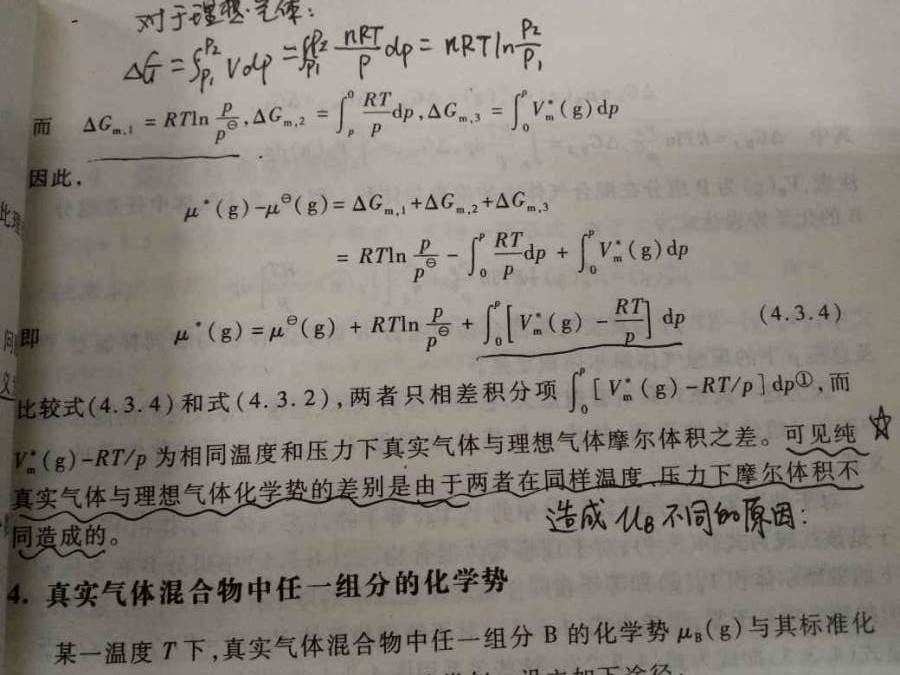 对于理想气体:
ΔG = ∫_{p₁}^{p₂} Vdp = ∫_{p₁}^{p₂} nRT/p dp = nRT ln p₂/p₁
而 ΔG_{m,1} = RTln p/p^⊖, ΔG_{m,2} = ∫_p^0 RT/p dp, ΔG_{m,3} = ∫_0^p V_m^*(g)dp
因此,
μ^*(g)-μ^⊖(g) = ΔG_{m,1}+ΔG_{m,2}+ΔG_{m,3}
= RTln p/p^⊖ - ∫_0^p RT/p dp + ∫_0^p V_m^*(g)dp
即 μ^*(g) = μ^⊖(g) + RTln p/p^⊖ + ∫_0^p [V_m^*(g) - RT/p] dp (4.3.4)
比较式(4.3.4)和式(4.3.2),两者只相差积分项 ∫_0^p [V_m^*(g)-RT/p]dp^①,而
V_m^*(g)-RT/p 为相同温度和压力下真实气体与理想气体摩尔体积之差。可见纯
真实气体与理想气体化学势的差别是由于两者在同样温度、压力下摩尔体积不
同造成的。
造成 μ_B 不同的原因:
4. 真实气体混合物中任一组分的化学势
某一温度 T 下,真实气体混合物中任一组分 B 的化学势 μ_B(g)与其标准化